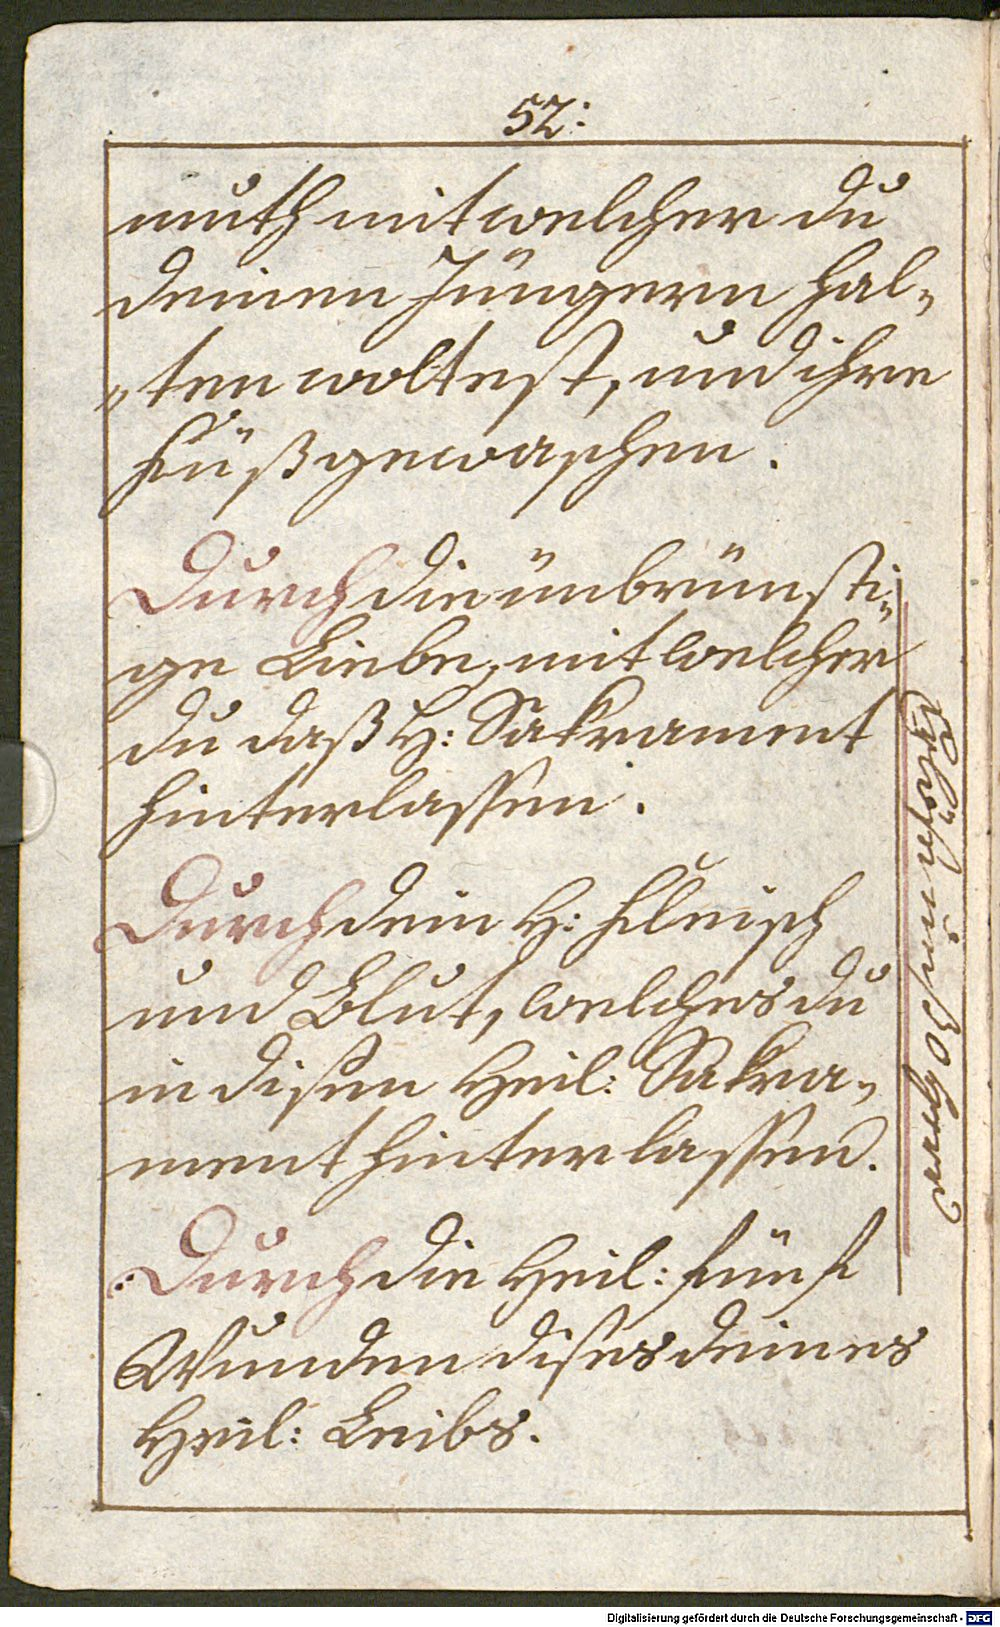 52:
muth mit welcher du
deinen Jüngern hal„
„ten woltest, und ihre
füß gewaschen.
Durch die ünbrünsti„
ge Liebe, mit welcher
du daß H: Sakrament
hinterlassen.
Durch dein H: fleisch
und Blut, welches du
in disen Heil: Sakra„
ment hinterlassen.
Durch die Heil: fünf
Wunden dises deines
Heil: Leibs.
Erhöre uns O Herr
Digitalisierung gefördert durch die Deutsche Forschungsgemeinschaft - DFG